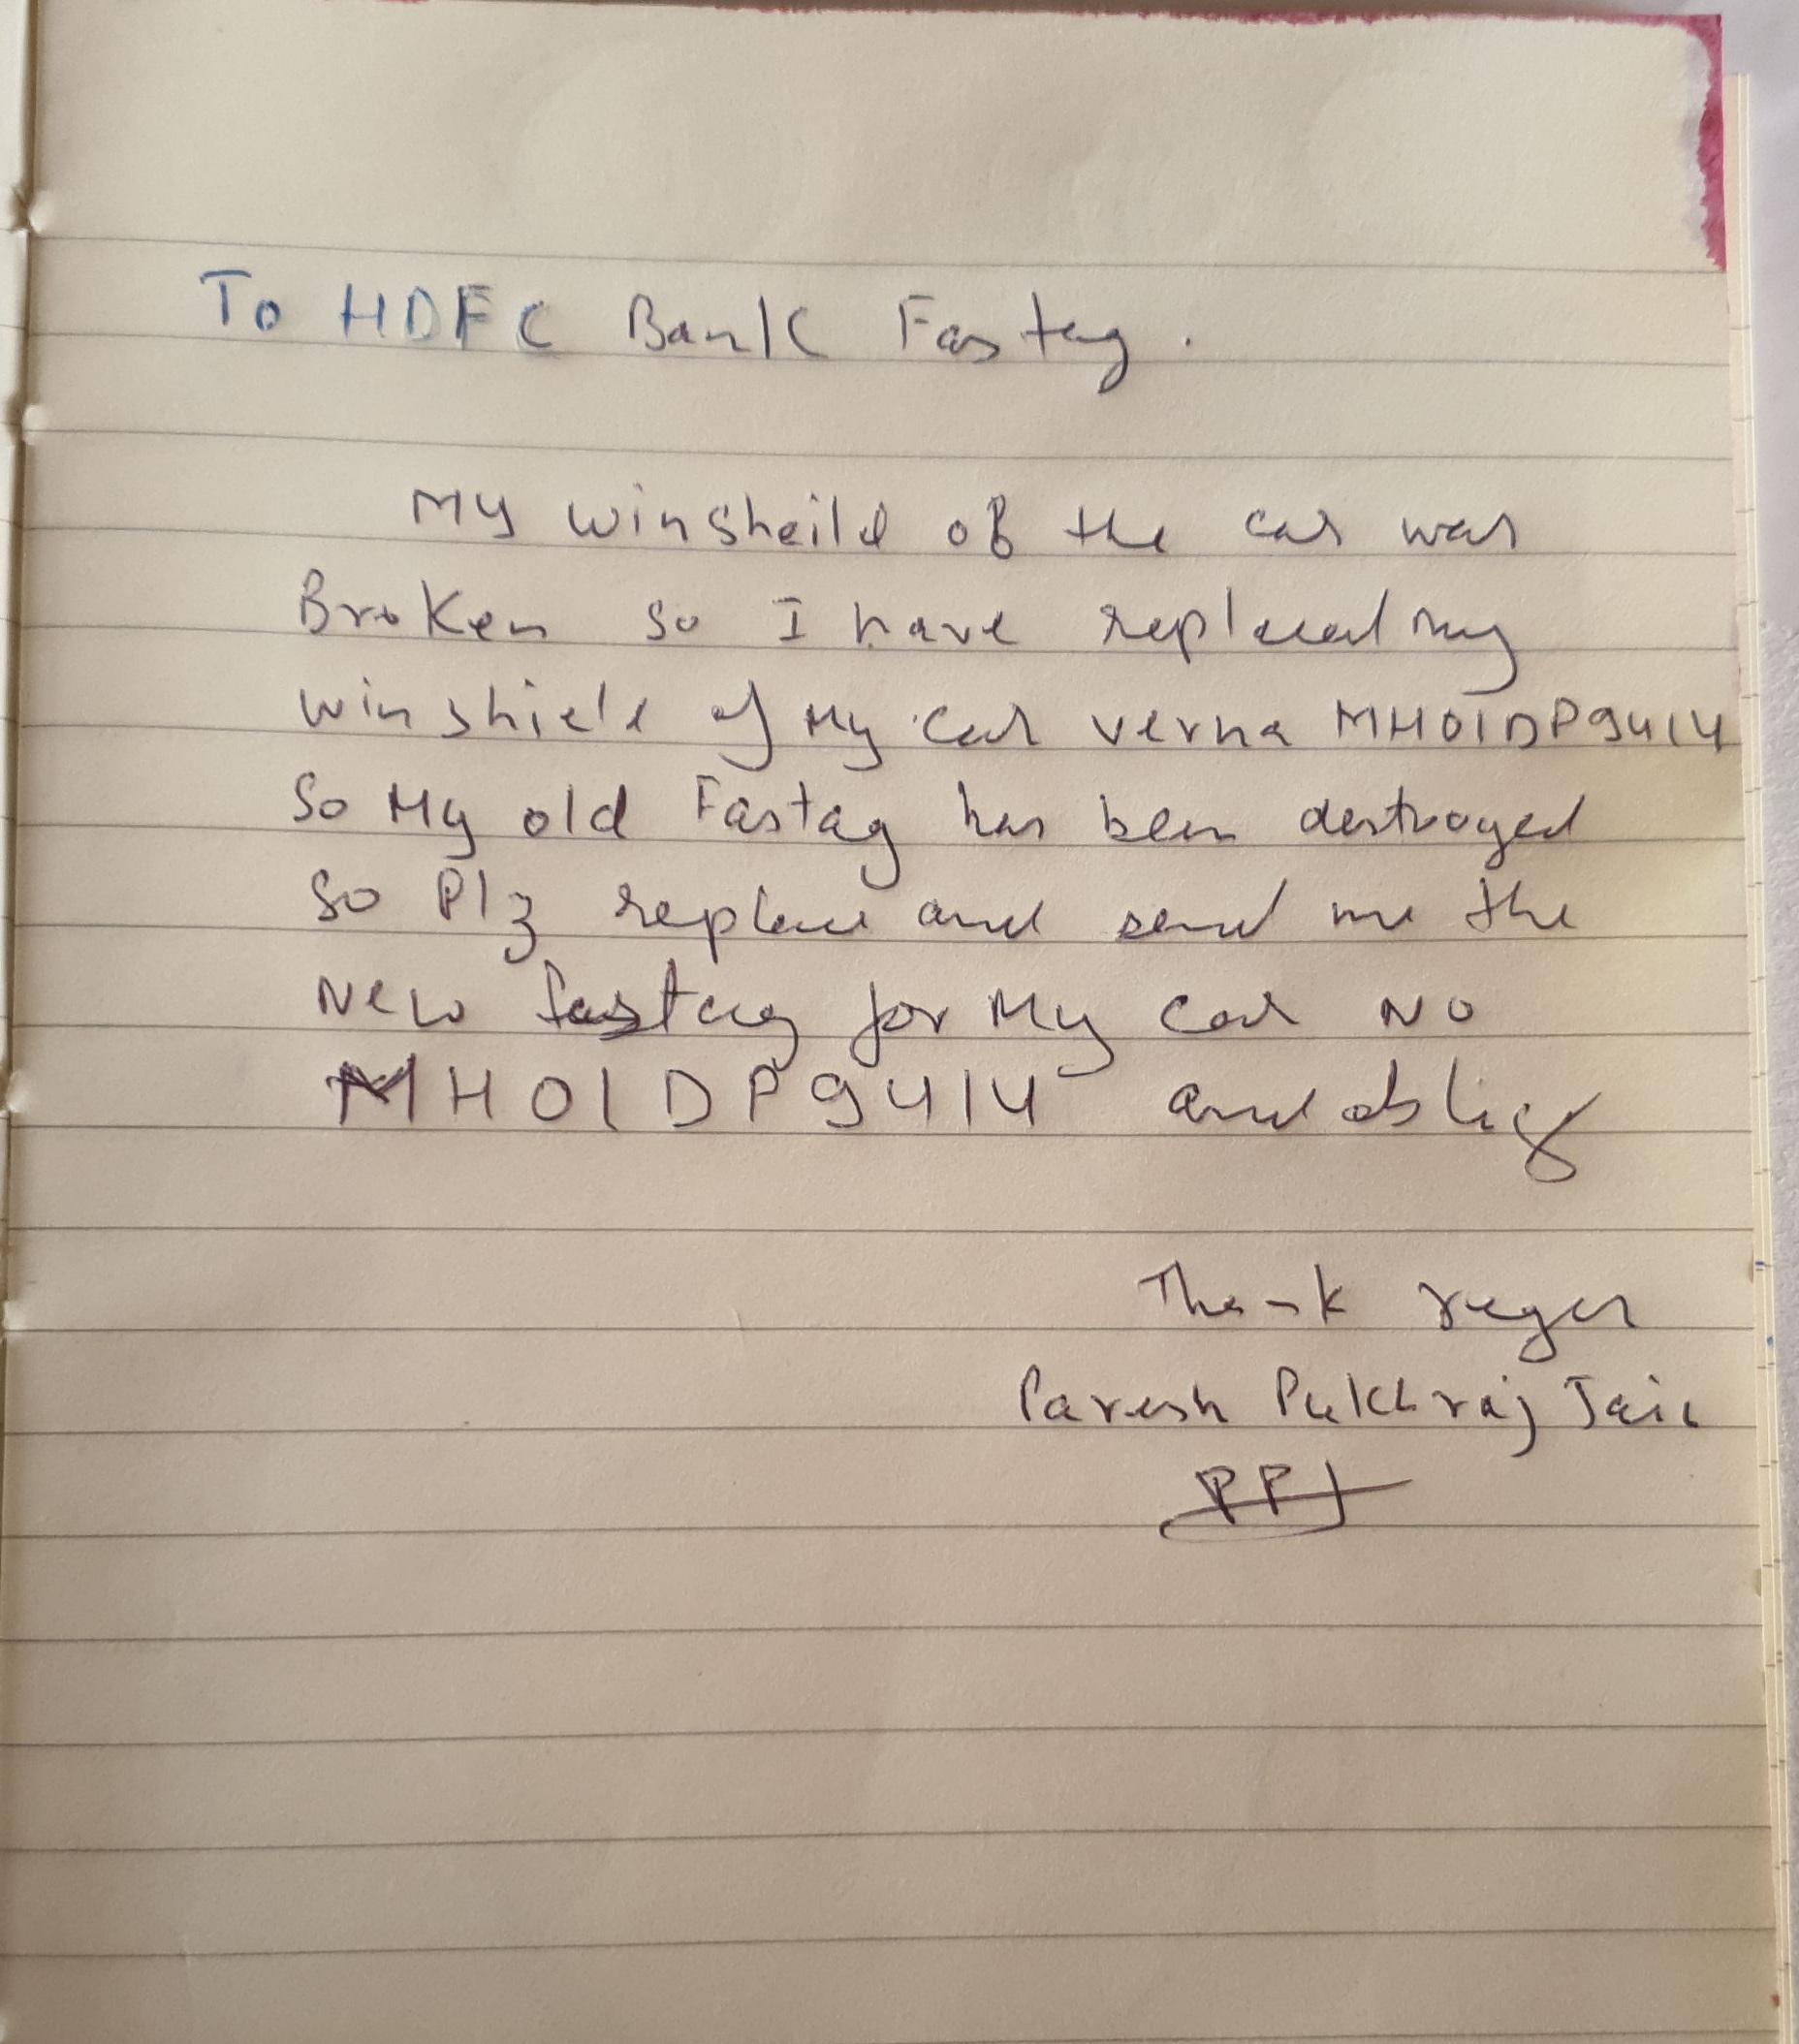 To HDFC Bank Fastag.
My winsheild of the car was
Broken so I have replaced my
winshield of My car verna MH01DP9414
So My old Fastag has been destroyed
So Plz replace and send me the
New fastag for My car No
MH01DP9414 and oblig
Thank
Paresh Pukhraj Jain
PPJ